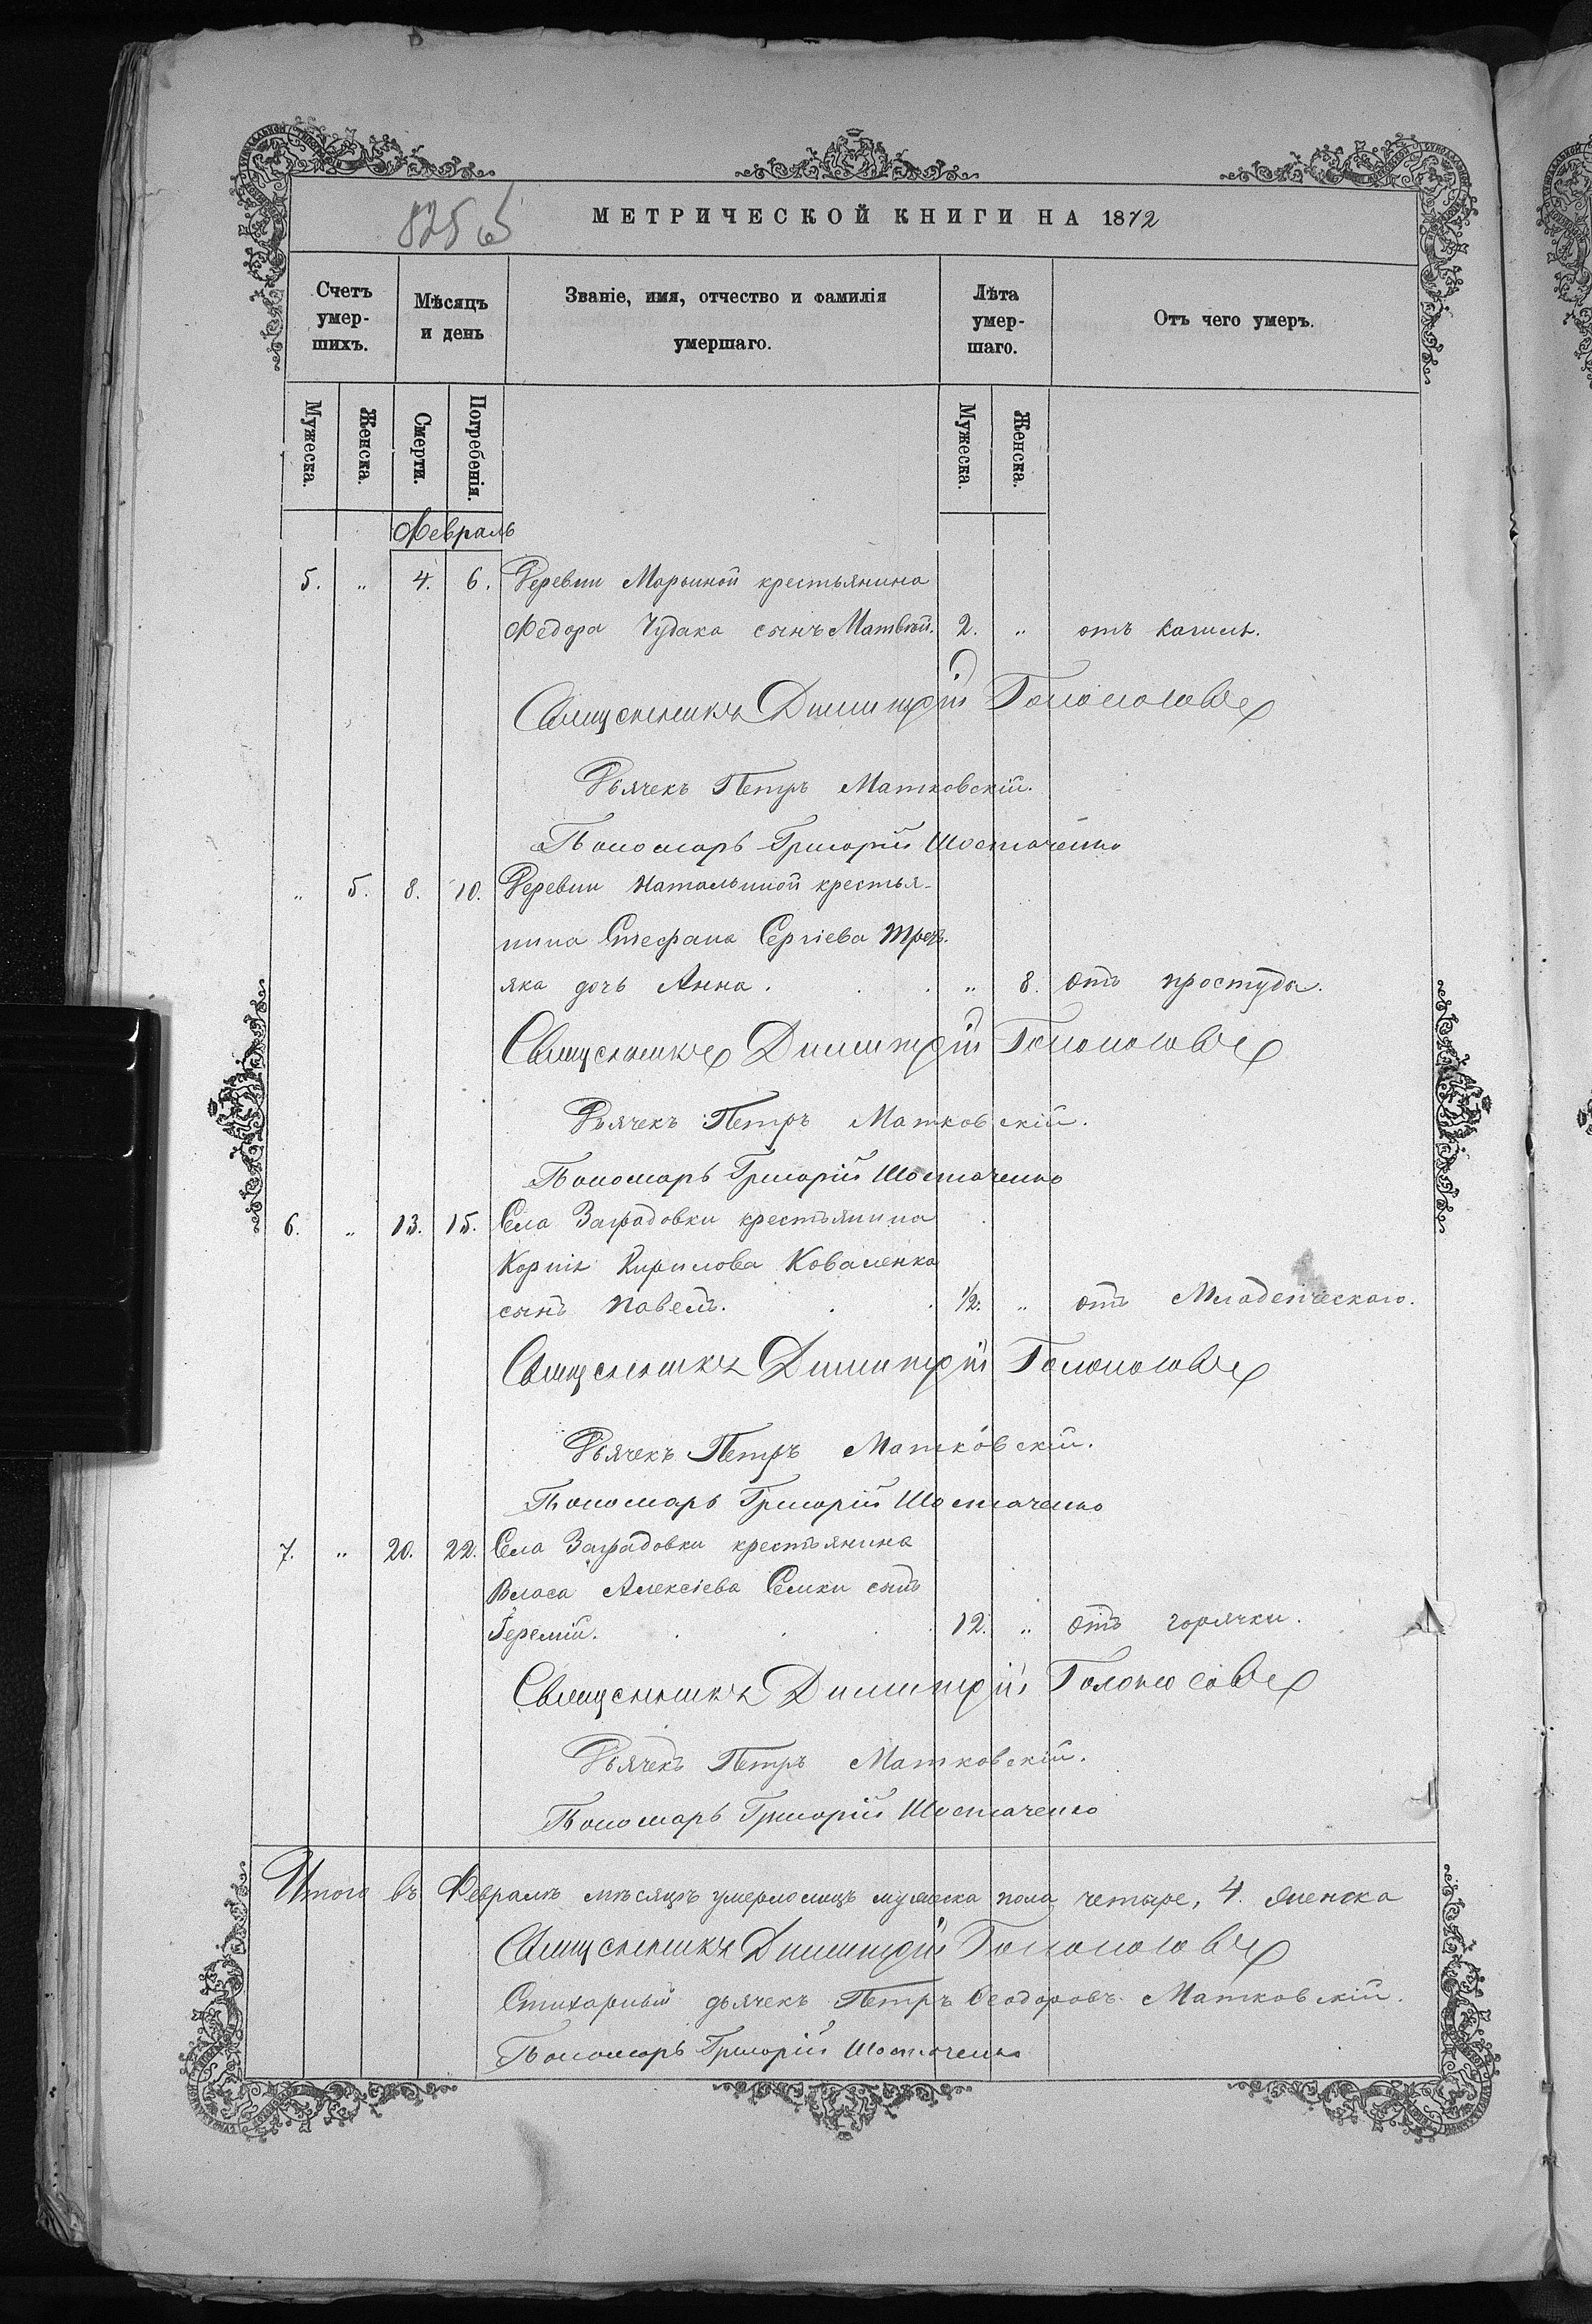 825 об
МЕТРИЧЕСКОЙ КНИГИ НА 1872
Счетъ умер-шихъ.
Мѣсяцъ и день
Званіе, имя, отчество и фамилія умершаго.
Лѣта умер-шаго.
Отъ чего умеръ.
Мужеска. Женска. Смерти. Погребенія. Мужеска. Женска.
Февраль
5. „ 4. 6. Деревни Марьиной крестьянина
Ѳедора Чудака сынъ Матвѣй. 2. „ отъ кашля.
Священникъ Димитрій Голоносовъ
Дьячекъ Петръ Матковскій.
Пономарь Григорій Шостаченко
„ 5. 8. 10. Деревни Натальиной крестья-
нина Стефана Сергіева Трет-
яка дочь Анна. „ 8. отъ простуды.
Священникъ Димитрій Голоносовъ
Дьячекъ Петръ Матковскій.
Пономарь Григорій Шостаченко
6. „ 13. 15. Села Заградовки крестьянина
Корнія Кирилова Коваленка
сынъ Павелъ. 1/2. „ отъ Младенческаго.
Священникъ Димитрій Голоносовъ
Дьячекъ Петръ Матковскій.
Пономарь Григорій Шостаченко
7. „ 20. 22. Села Заградовки крестьянина
Власа Алексіева Семки сынъ
Іеремій. 12. „ отъ горячки.
Священникъ Димитрій Голоносовъ
Дьячекъ Петръ Матковскій.
Пономарь Григорій Шостаченко
Итого въ Февралѣ мѣсяцѣ умерло лицъ мужеска пола четыре, 4. женска
Священникъ Димитрій Голоносовъ
Стихарный дьячекъ Петръ Ѳеодоровъ Матковскій.
Пономарь Григорій Шостаченко